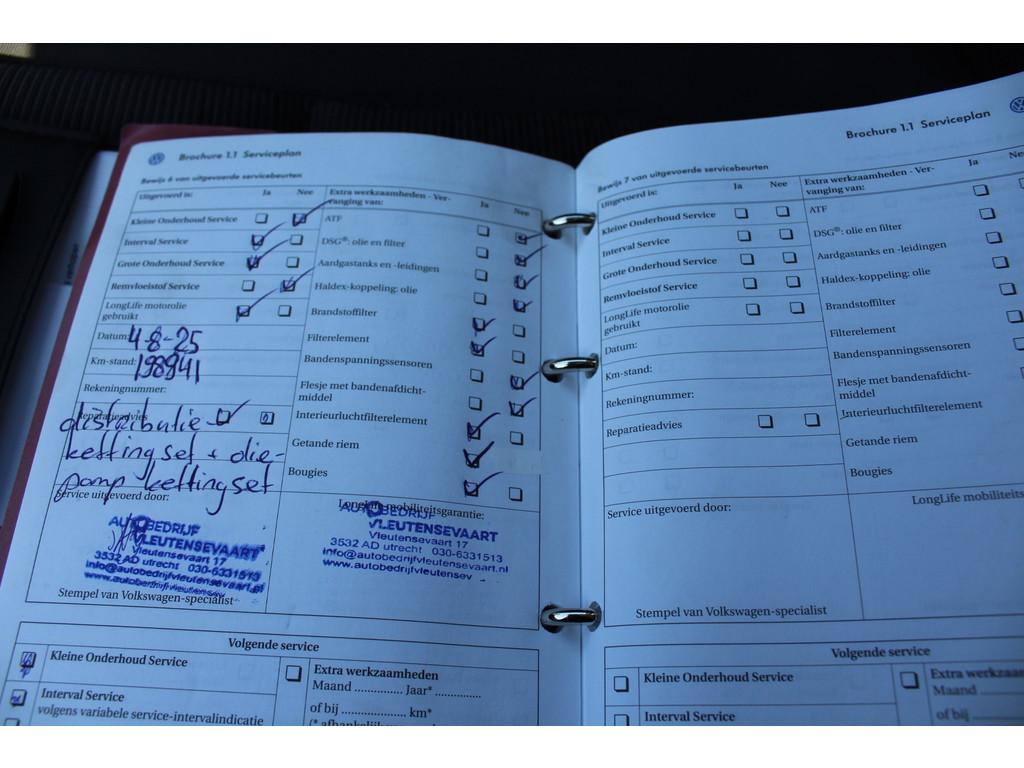 Brochure 1.1 Serviceplan
Bewijs 6 van uitgevoerde servicebeurten
Uitgevoerd is: Ja Nee
Kleine Onderhoud Service
Interval Service
Grote Onderhoud Service
Remvloeistof Service
LongLife motorolie
gebruikt
Datum: 4-8-25
Km-stand: 198941
Rekeningnummer:
Reparatieadvies
distributie-
kettingset + olie-
pomp kettingset
Service uitgevoerd door:
AUTOBEDRIJF
VLEUTENSEVAART
Vleutensevaart 17
3532 AD utrecht 030-6331513
info@autobedrijfvleutensevaart.nl
www.autobedrijfvleutensev
Stempel van Volkswagen-specialist
Extra werkzaamheden - Ver-
vanging van: Ja Nee
ATF
DSG®: olie en filter
Aardgastanks en -leidingen
Haldex-koppeling: olie
Brandstoffilter
Filterelement
Bandenspanningssensoren
Flesje met bandenafdicht-
middel
Interieurluchtfilterelement
Getande riem
Bougies
LongLife mobiliteitsgarantie:
AUTOBEDRIJF
VLEUTENSEVAART
Vleutensevaart 17
3532 AD utrecht 030-6331513
info@autobedrijfvleutensevaart.nl
www.autobedrijfvleutensev
Volgende service
Kleine Onderhoud Service
Interval Service
volgens variabele service-intervalindicatie
Extra werkzaamheden
Maand .............. Jaar* ..............
of bij ................... km*
Brochure 1.1 Serviceplan
Bewijs 7 van uitgevoerde servicebeurten
Uitgevoerd is: Ja Nee
Kleine Onderhoud Service
Interval Service
Grote Onderhoud Service
Remvloeistof Service
LongLife motorolie
gebruikt
Datum:
Km-stand:
Rekeningnummer:
Reparatieadvies
Service uitgevoerd door:
Stempel van Volkswagen-specialist
Extra werkzaamheden - Ver-
vanging van: Ja Ne
ATF
DSG®: olie en filter
Aardgastanks en -leidingen
Haldex-koppeling: olie
Brandstoffilter
Filterelement
Bandenspanningssensoren
Flesje met bandenafdicht-
middel
Interieurluchtfilterelement
Getande riem
Bougies
LongLife mobiliteits
Volgende service
Kleine Onderhoud Service
Interval Service
Extra werkzaam
Maand
of bij